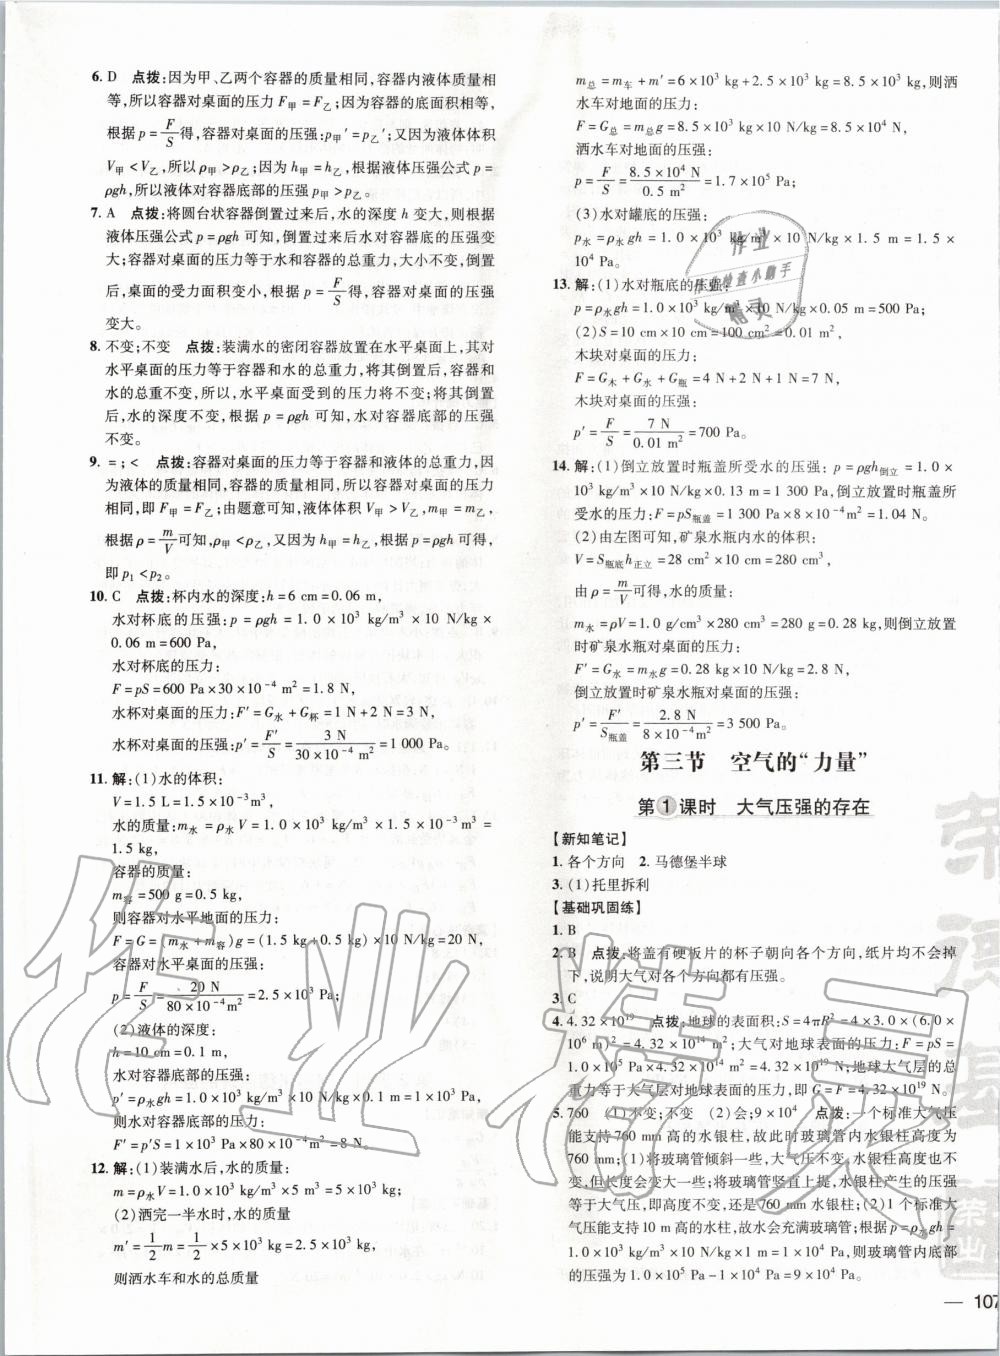 6. D 点拨:因为甲、乙两个容器的质量相同,容器内液体质量相
等,所以容器对桌面的压力 F甲 = F乙;因为容器的底面积相等,
根据 p = F/S 得,容器对桌面的压强:p甲′ = p乙′;又因为液体体积
V甲 < V乙,所以 ρ甲 > ρ乙;因为 h甲 = h乙,根据液体压强公式 p =
ρgh,所以液体对容器底部的压强 p甲 > p乙。
7. A 点拨:将圆台状容器倒置过来后,水的深度 h 变大,则根据
液体压强公式 p = ρgh 可知,倒置过来后水对容器底的压强变
大;容器对桌面的压力等于水和容器的总重力,大小不变,倒置
后,桌面的受力面积变小,根据 p = F/S 得,容器对桌面的压强
变大。
8. 不变;不变 点拨:装满水的密闭容器放置在水平桌面上,其对
水平桌面的压力等于容器和水的总重力,将其倒置后,容器和
水的总重不变,所以,水平桌面受到的压力将不变;将其倒置
后,水的深度不变,根据 p = ρgh 可知,水对容器底部的压强
不变。
9. = ; < 点拨:容器对桌面的压力等于容器和液体的总重力,因
为液体的质量相同,容器的质量相同,所以两个容器的总重力
相同,即 F甲 = F乙;由题意可知,液体体积 V甲 > V乙,m甲 = m乙,
根据 ρ = m/V 可知,ρ甲 < ρ乙,又因为 h甲 = h乙,根据 p = ρgh 可得,
即 p1 < p2。
10. C 点拨:杯内水的深度:h = 6 cm = 0.06 m,
水对杯底的压强:p = ρgh = 1.0 × 10³ kg/m³ × 10 N/kg ×
0.06 m = 600 Pa,
水对杯底的压力:
F = pS = 600 Pa × 30 × 10⁻⁴ m² = 1.8 N,
水杯对桌面的压力:F′ = G水 + G杯 = 1 N + 2 N = 3 N,
水杯对桌面的压强:p′ = F′/S = 3 N/(30 × 10⁻⁴ m²) = 1 000 Pa。
11. 解:(1)水的体积:
V = 1.5 L = 1.5 × 10⁻³ m³,
水的质量:m水 = ρ水V = 1.0 × 10³ kg/m³ × 1.5 × 10⁻³ m³ =
1.5 kg,
容器的质量:
m容 = 500 g = 0.5 kg,
则容器对水平地面的压力:
F = G = (m水 + m容)g = (1.5 kg + 0.5 kg) × 10 N/kg = 20 N,
容器对水平桌面的压强:
p = F/S = 20 N/(80 × 10⁻⁴ m²) = 2.5 × 10³ Pa;
(2)液体的深度:
h = 10 cm = 0.1 m,
水对容器底部的压强:
p′ = ρ水gh = 1.0 × 10³ kg/m³ × 10 N/kg × 0.1 m = 1 × 10³ Pa,
水对容器底部的压力:
F′ = p′S = 1 × 10³ Pa × 80 × 10⁻⁴ m² = 8 N。
12. 解:(1)装满水后,水的质量:
m = ρ水V = 1.0 × 10³ kg/m³ × 5 m³ = 5 × 10³ kg;
(2)洒完一半水时,水的质量:
m′ = 1/2 m = 1/2 × 5 × 10³ kg = 2.5 × 10³ kg,
则洒水车和水的总质量
m总 = m车 + m′ = 6 × 10³ kg + 2.5 × 10³ kg = 8.5 × 10³ kg,则洒
水车对地面的压力:
F = G总 = m总g = 8.5 × 10³ kg × 10 N/kg = 8.5 × 10⁴ N,
洒水车对地面的压强:
p = F/S = 8.5 × 10⁴ N/0.5 m² = 1.7 × 10⁵ Pa;
(3)水对罐底的压强:
p水 = ρ水gh = 1.0 × 10³ kg/m³ × 10 N/kg × 1.5 m = 1.5 ×
10⁴ Pa。
13. 解:(1)水对瓶底的压强:
p = ρ水gh = 1.0 × 10³ kg/m³ × 10 N/kg × 0.05 m = 500 Pa;
(2)S = 10 cm × 10 cm = 100 cm² = 0.01 m²,
木块对桌面的压力:
F = G木 + G水 + G瓶 = 4 N + 2 N + 1 N = 7 N,
木块对桌面的压强:
p′ = F/S = 7 N/0.01 m² = 700 Pa。
14. 解:(1)倒立放置时瓶盖所受水的压强:p = ρgh倒立 = 1.0 ×
10³ kg/m³ × 10 N/kg × 0.13 m = 1 300 Pa,倒立放置时瓶盖所
受水的压力:F = pS瓶盖 = 1 300 Pa × 8 × 10⁻⁴ m² = 1.04 N。
(2)由左图可知,矿泉水瓶内水的体积:
V = S瓶底h正立 = 28 cm² × 10 cm = 280 cm³,
由 ρ = m/V 可得,水的质量:
m水 = ρV = 1.0 g/cm³ × 280 cm³ = 280 g = 0.28 kg,则倒立放置
时矿泉水瓶对桌面的压力:
F′ = G水 = m水g = 0.28 kg × 10 N/kg = 2.8 N,
倒立放置时矿泉水瓶对桌面的压强:
p′ = F′/S瓶盖 = 2.8 N/(8 × 10⁻⁴ m²) = 3 500 Pa。
第三节 空气的“力量”
第1课时 大气压强的存在
【新知笔记】
1. 各个方向 2. 马德堡半球
3. (1)托里拆利
【基础巩固练】
1. B
2. B 点拨:将盖有硬板片的杯子朝向各个方向,纸片均不会掉
下,说明大气对各个方向都有压强。
3. C
4. 4.32×10¹⁹ 点拨:地球的表面积:S = 4πR² = 4 × 3.0 × (6.0 ×
10⁶ m)² = 4.32 × 10¹⁴ m²;大气对地球表面的压力:F = pS =
1.0 × 10⁵ Pa × 4.32 × 10¹⁴ m² = 4.32 × 10¹⁹ N;地球大气层的总
重力等于大气层对地球表面的压力,即 G = F = 4.32 × 10¹⁹ N。
5. 760 (1)不变;不变 (2)会;9×10⁴ 点拨:一个标准大气压
能支持 760 mm 高的水银柱,故此时玻璃管内水银柱高度为
760 mm;(1)将玻璃管倾斜一些,大气压不变,水银柱的高度
不变;若将玻璃管竖直上提,水银柱产生的压强
等于大气压,即高度不变,还是 760 mm;(2)1 个标准大
气压能支持 10 m 高的水柱,故水会充满玻璃管;根据 p = ρ水gh =
1.0 × 10³ kg/m³ × 10 N/kg × 1 m = 1 × 10⁴ Pa,则玻璃管内底部
的压强为 1.0 × 10⁵ Pa − 1 × 10⁴ Pa = 9 × 10⁴ Pa。
— 107
作业
作业检查小助手
精灵
作业精灵